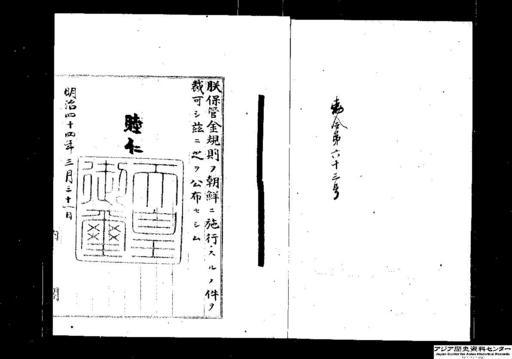 勅令第六十三号
朕保管金規則ヲ朝鮮ニ施行スルノ件ヲ
裁可シ茲ニ之ヲ公布セシム
睦仁
天皇御璽
明治四十四年三月三十一日
内閣
アジア歴史資料センター
Japan Center for Asian Historical Records